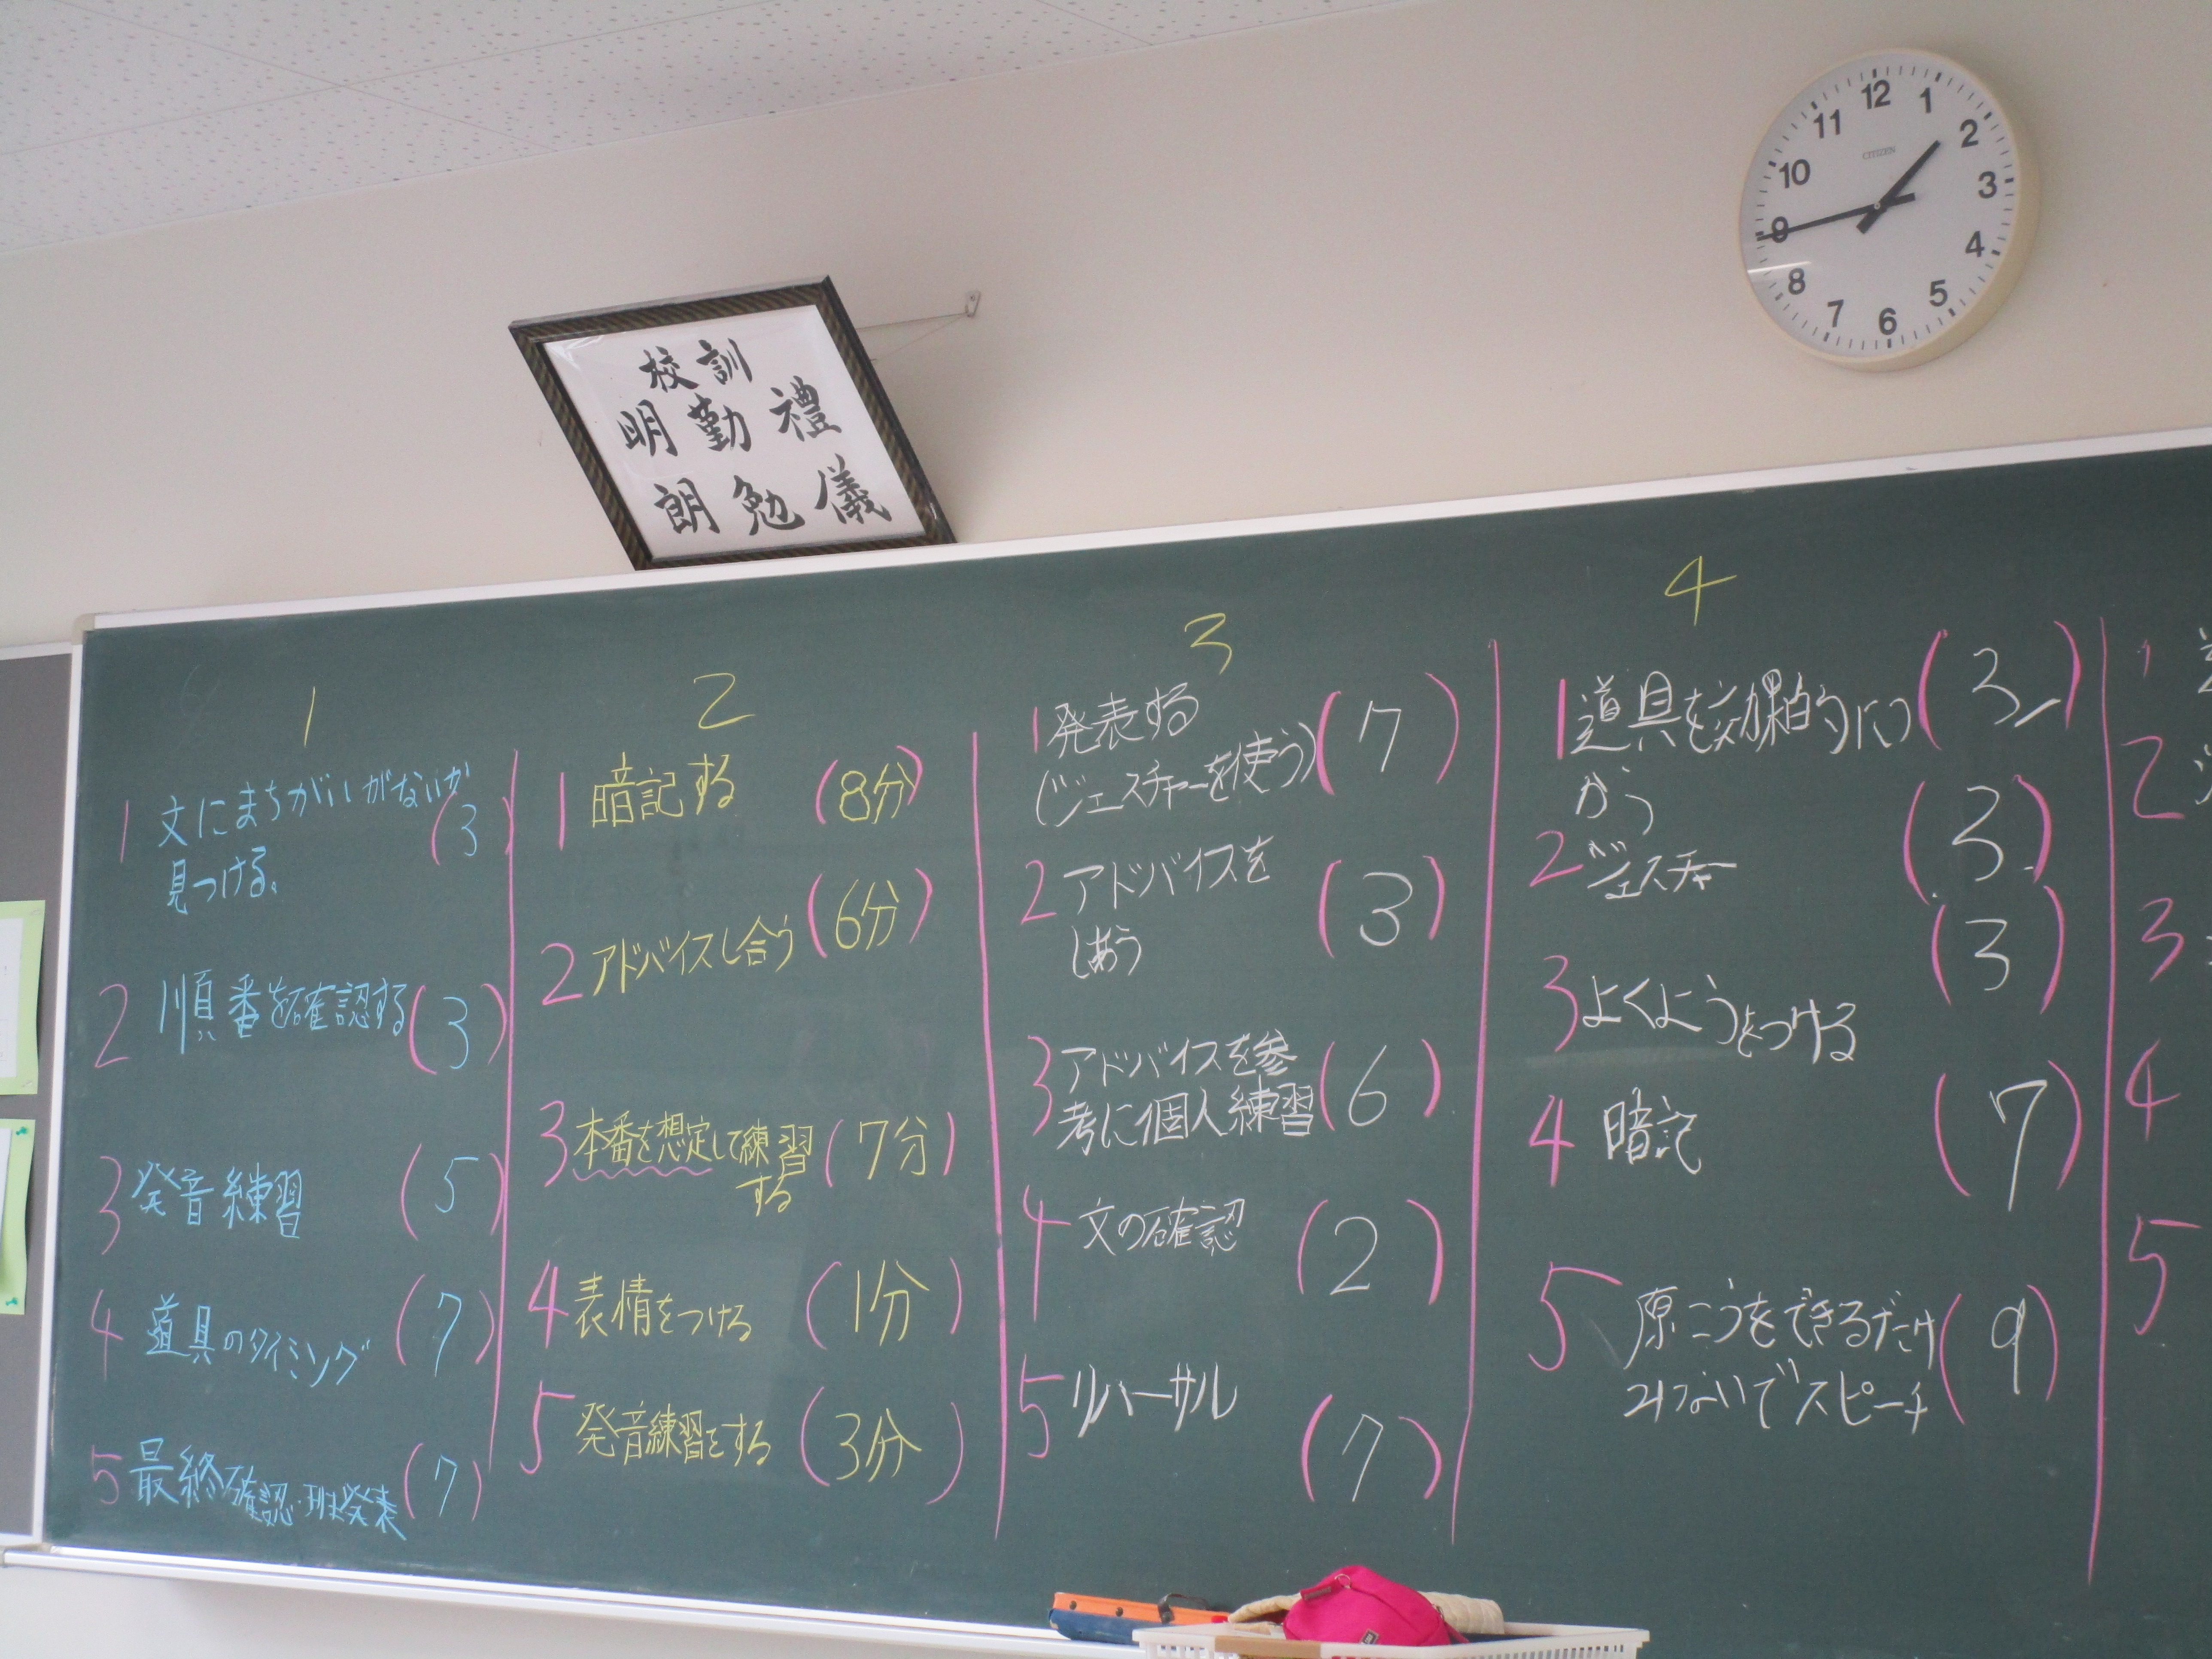 校訓
禮儀
勤勉
明朗
12
1
2
3
4
5
6
7
8
9
10
11
CITIZEN
1
1 文にまちがいがないか (3)
見つける。
2 順番を確認する (3)
3 発音練習 (5)
4 道具のタイミング (7)
5 最終確認・班発表 (7)
2
1 暗記する (8分)
2 アドバイスし合う (6分)
3 本番を想定して練習 (7分)
する
4 表情をつける (1分)
5 発音練習をする (3分)
3
1 発表する
(ジェスチャーを使う) (7)
2 アドバイスを (3)
しあう
3 アドバイスを参
考に個人練習 (6)
4 文の確認 (2)
5 リハーサル (7)
4
1 道具を効果的につ (3)
かう
2 ジェスチャー (3)
3 よくようをつける (3)
4 暗記 (7)
5 原こうをできるだけ (9)
みないでスピーチ
1
2
3
4
5